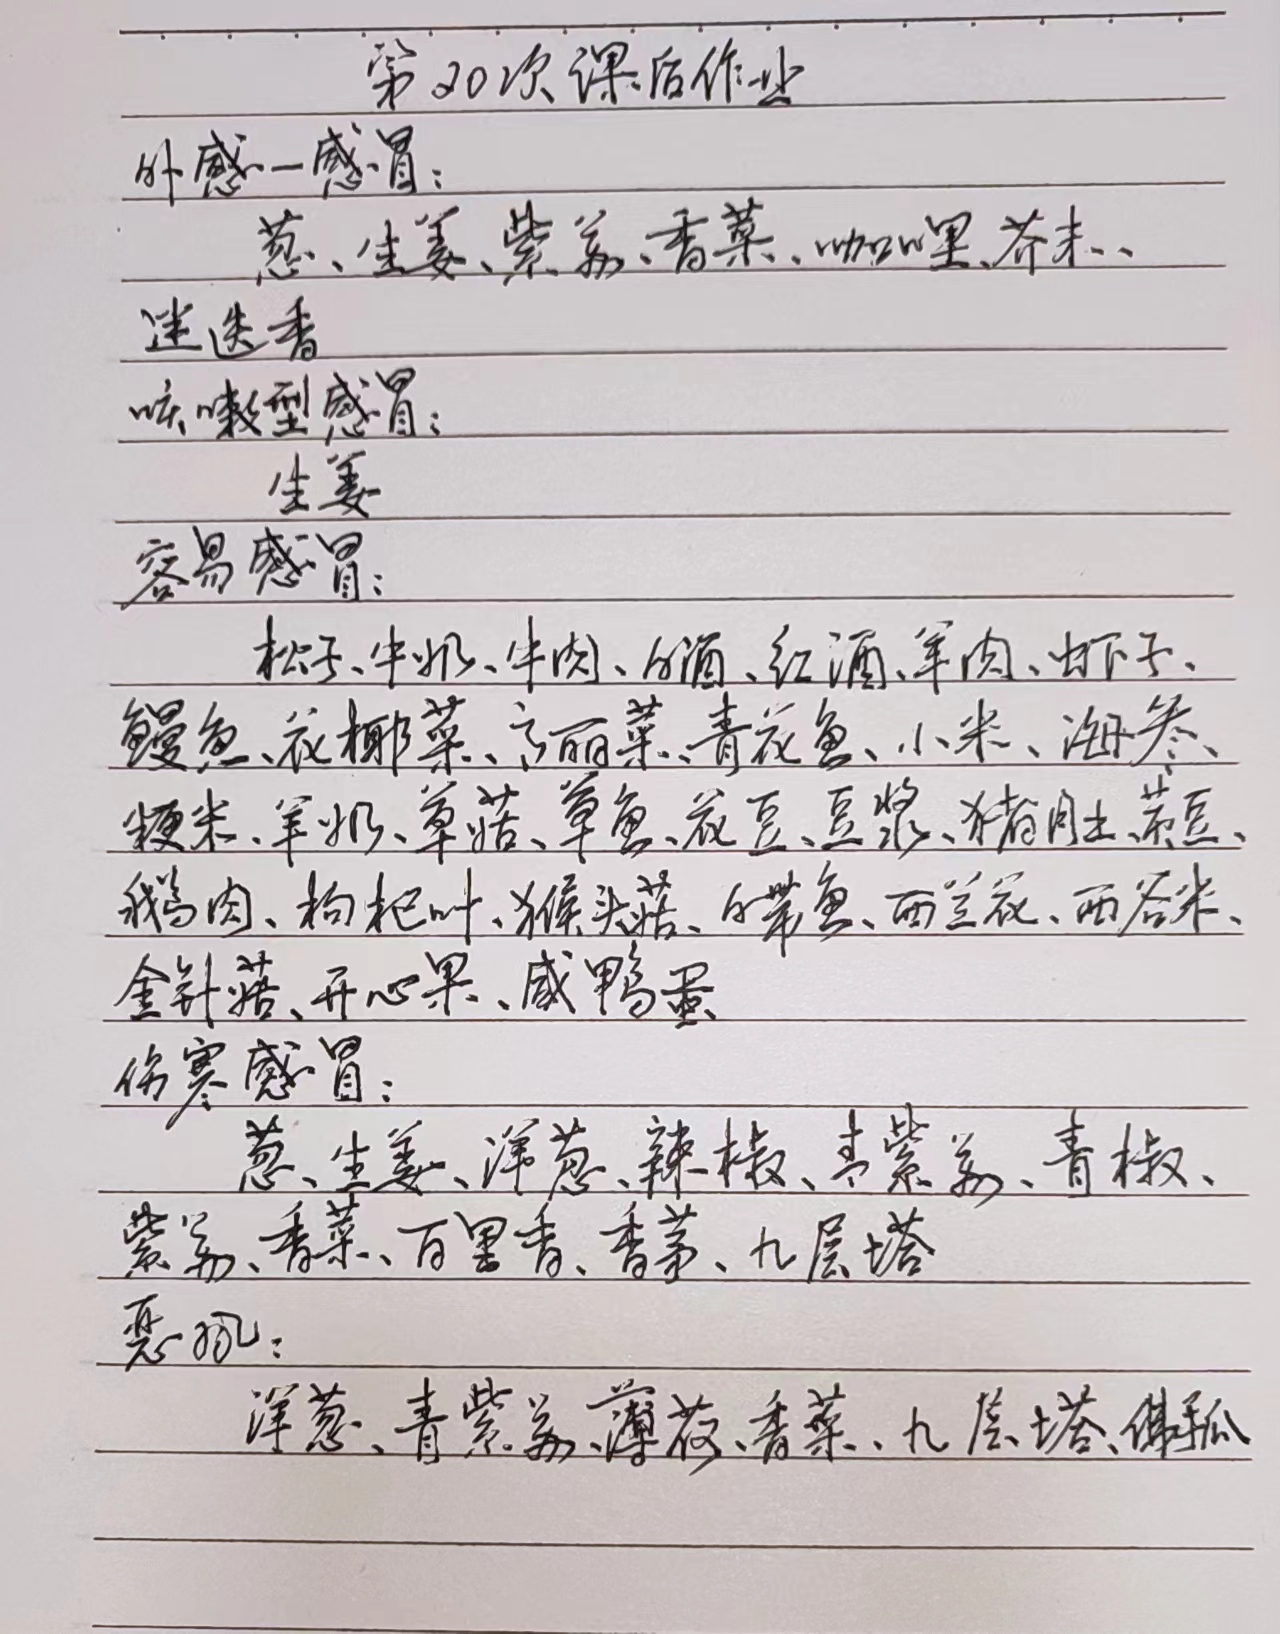 第20次课后作业
外感一感冒：
葱、生姜、紫苏、香菜、咖哩、芥末、
迷迭香
咳嗽型感冒：
生姜
容易感冒：
松子、牛奶、牛肉、白酒、红酒、羊肉、虾子、
鳗鱼、花椰菜、高丽菜、青花鱼、小米、海参、
粳米、羊奶、草菇、草鱼、花豆、豆浆、猪肚、茶豆、
鹅肉、枸杞叶、猴头菇、白带鱼、西兰花、西谷米、
金针菇、开心果、咸鸭蛋
伤寒感冒：
葱、生姜、洋葱、辣椒、青紫苏、青椒、
紫苏、香菜、百里香、香茅、九层塔
恶风：
洋葱、青紫苏、薄荷、香菜、九层塔、佛手瓜